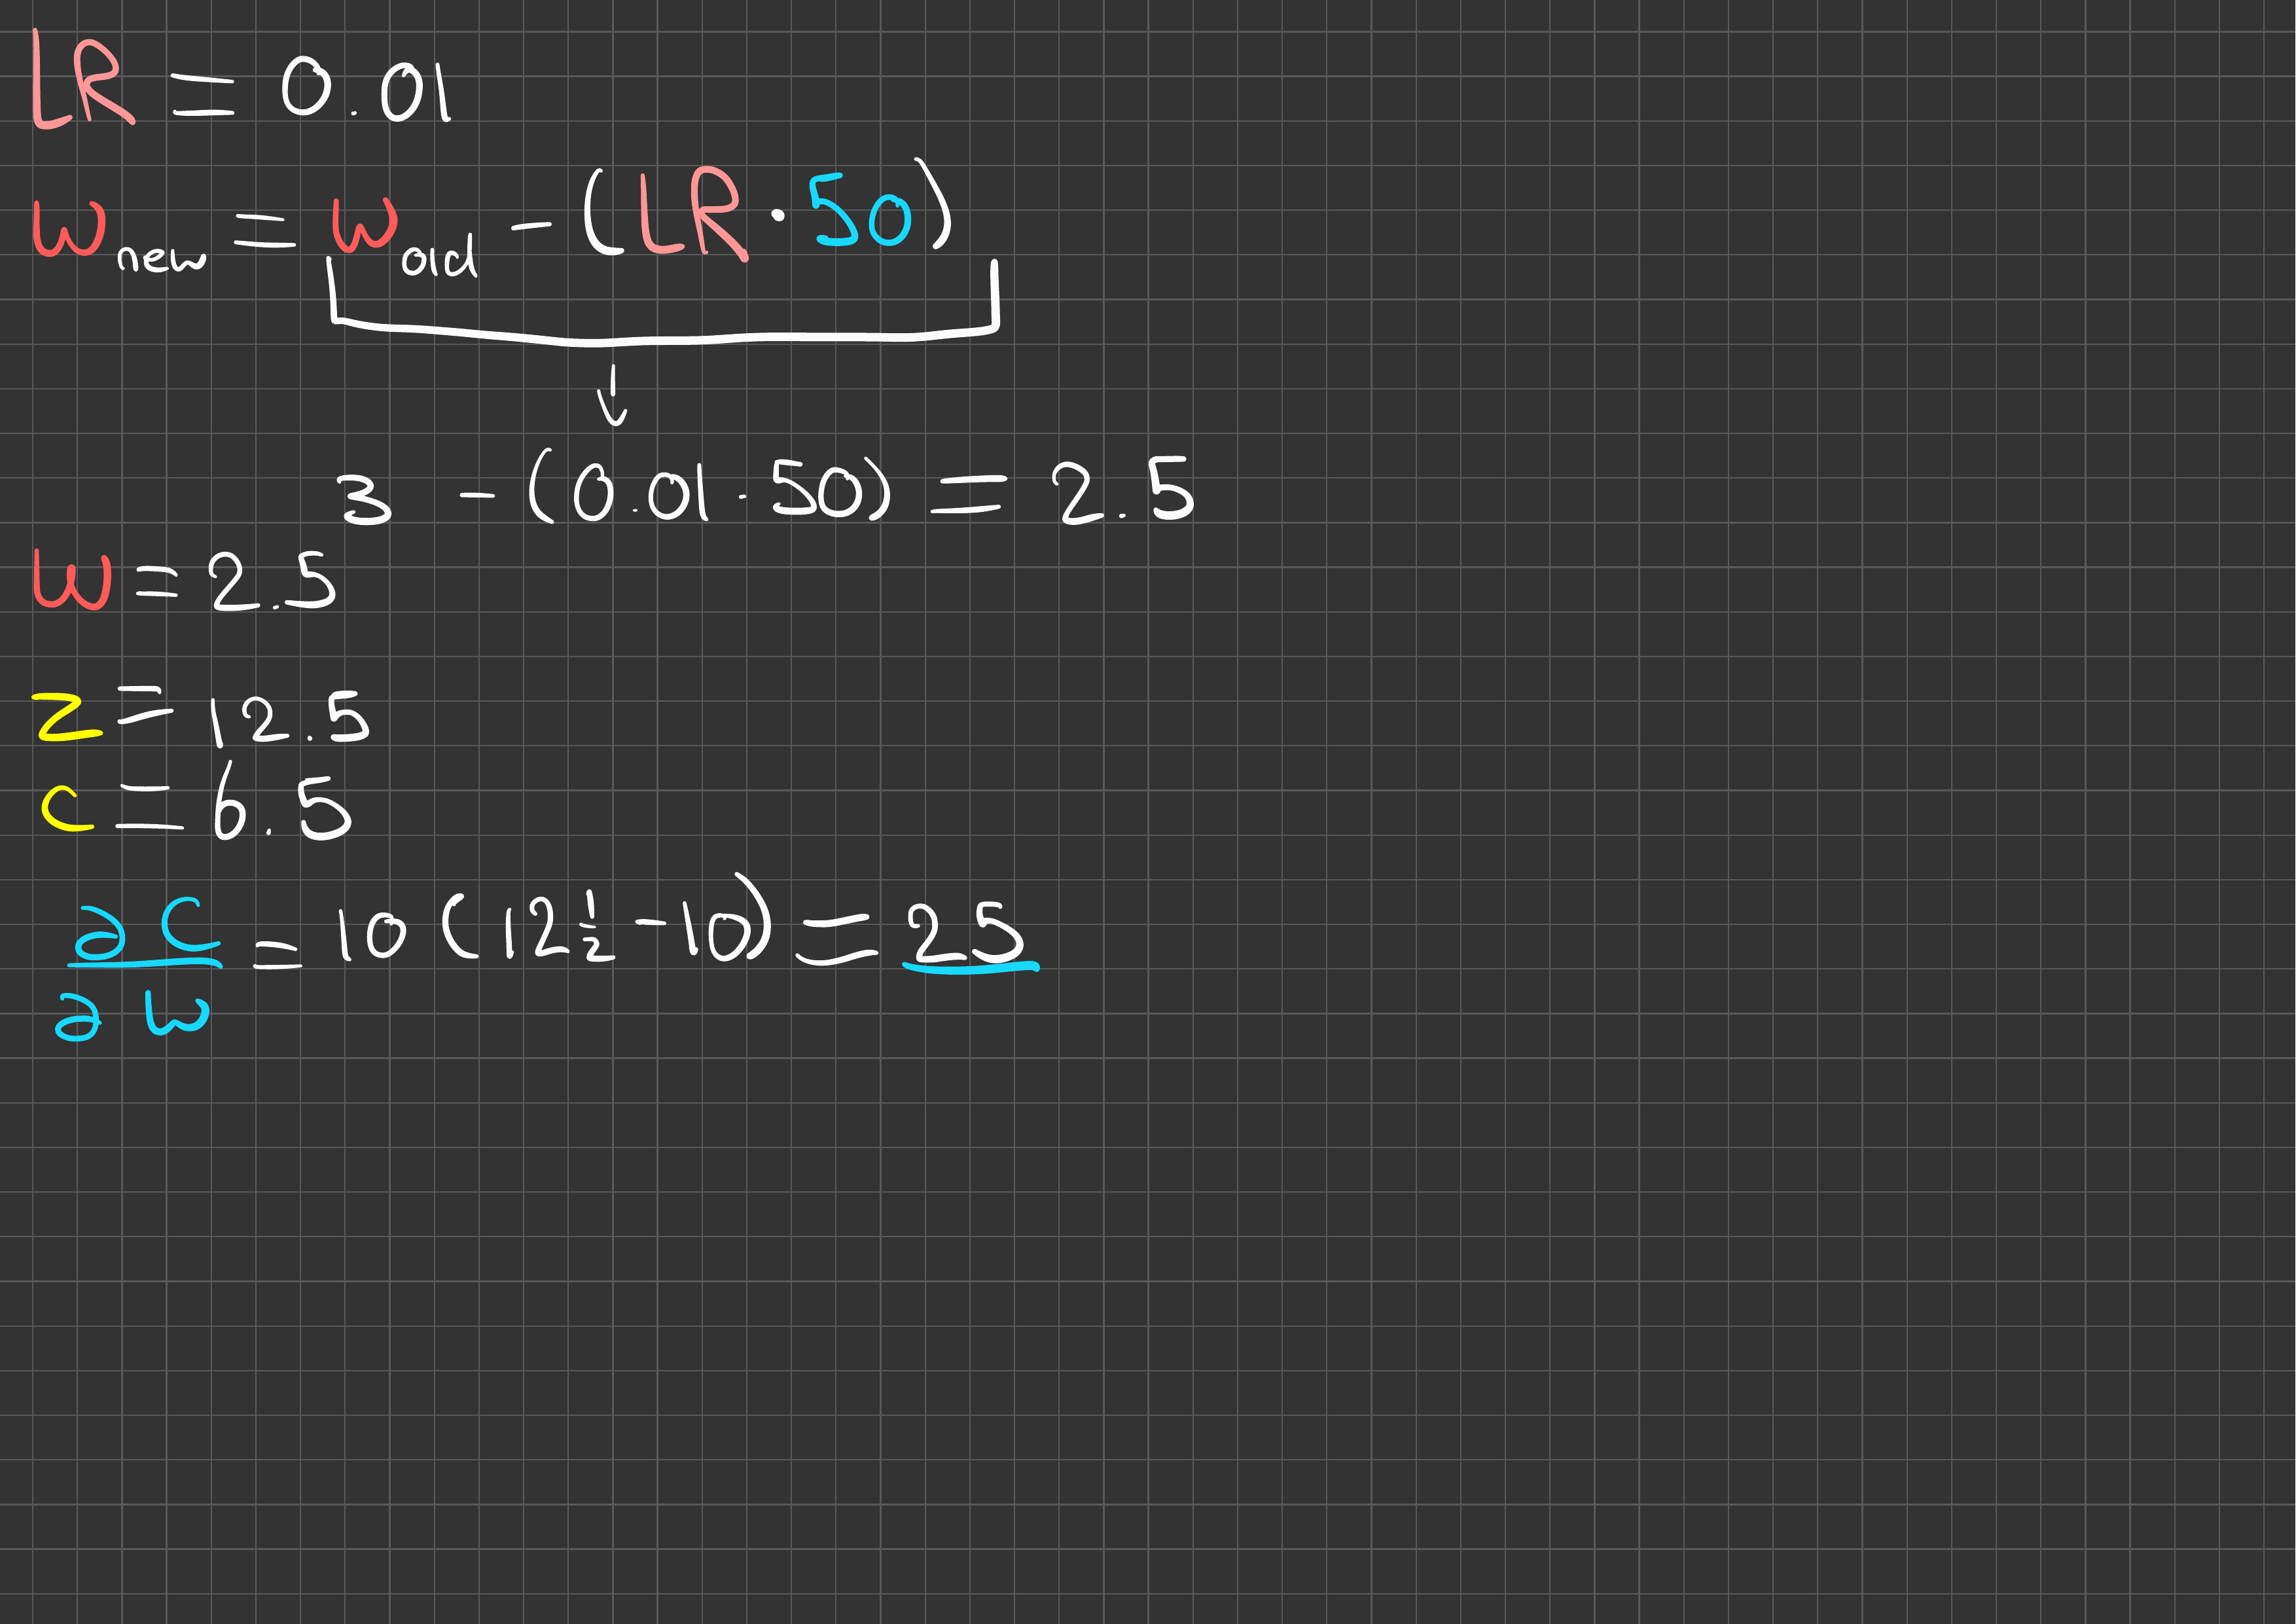 LR = 0.01
w new = w old - (LR · 50)
3 - (0.01 · 50) = 2.5
w = 2.5
z = 12.5
c = 6.5
∂C/∂w = 10 (12 1/2 - 10) = 25